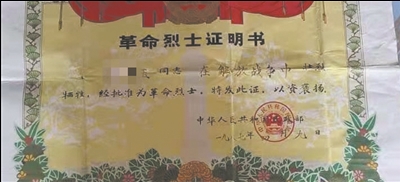 革命烈士证明书
同志在解放战争中壮烈
牺牲,经批准为革命烈士,特发此证,以资褒扬。
中华人民共和国民政部
一九 年 月九日